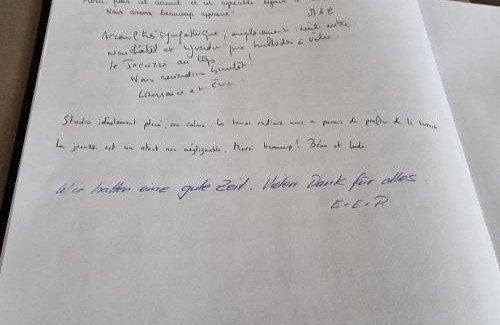 Merci pour cet accueil et cet agréable
Nous avons beaucoup apprécié!
Accueil très sympathique, emplacement idéal entre
Neuchâtel et Yverdon pour ballades à vélo.
le Jacuzzi au top!
Nous reviendrons bientôt!
Laurence et Eric
Studio idéalement placé, au calme. Le temps radieux nous a permis de profiter de la terrasse
Le jacuzzi est un atout non négligeable. Merci beaucoup! et
Wir hatten eine gute Zeit. Vielen Dank für alles.
E+E+R